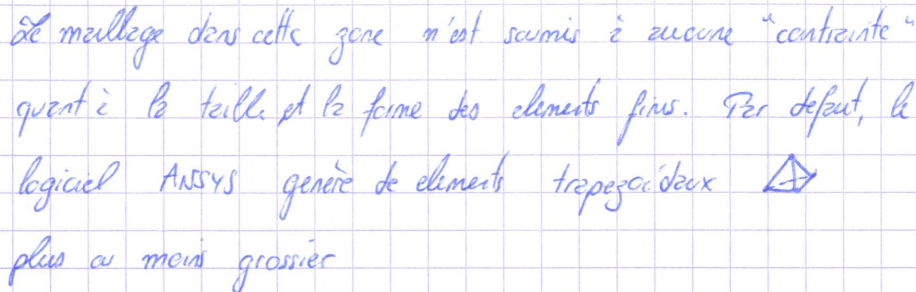 Le maillage dans cette zone n'est soumis à aucune "contrainte"
quant à la taille et la forme des elements finis. Par defaut, le
logiciel ANSYS genère de elements trapezoïdaux
plus ou moins grossier